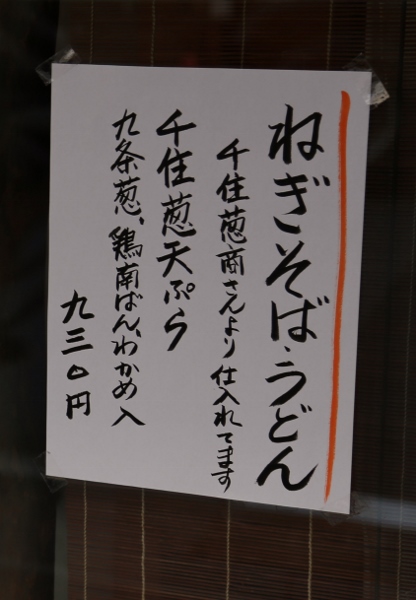 ねぎそば・うどん
千住葱商さんより仕入れてます
千住葱天ぷら
九条葱、鶏南ばん、わかめ入
九三〇円